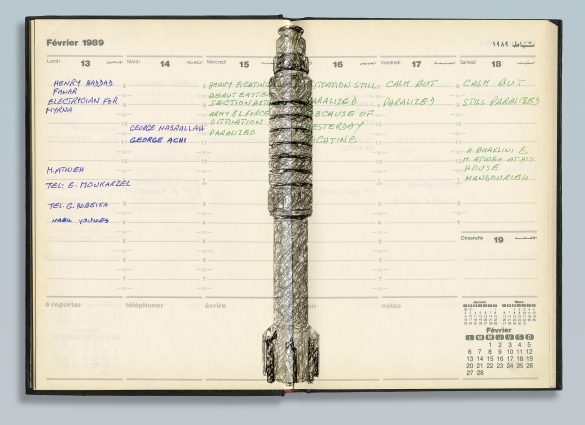 Février 1989
شباط ١٩٨٩
Lundi 13
Mardi 14
Mercredi 15
16
Vendredi 17
Samedi 18
HENRY HADDAD
FANAR
ELECTRICIAN FOR
MYRNA
M. ATWEH
TEL: E. MOUKARZEL
TEL. G. HOBEIKA
NABIL YOUNES
GEORGE NASRALLAH
GEORGE ACHI
HEAVY FIGHTING
BEIRUT EASTERN
SECTION BET
ARMY & L.FORCE
SITUATION
PARALIZED
ITATION STILL
ARALIZED
BECAUSE OF
YESTERDAY
IGHTING
CALM BUT
PARALIZED
CALM BUT
STILL PARALIZED
A. BAAKLINI &
M. ATWEH AT HIS
HOUSE
MANSOURIEH
Dimanche 19
à reporter
téléphoner
écrire
voir
notes
Janvier
Mars
Février
L M M J V S D
1 2 3 4 5
6 7 8 9 10 11 12
13 14 15 16 17 18 19
20 21 22 23 24 25 26
27 28